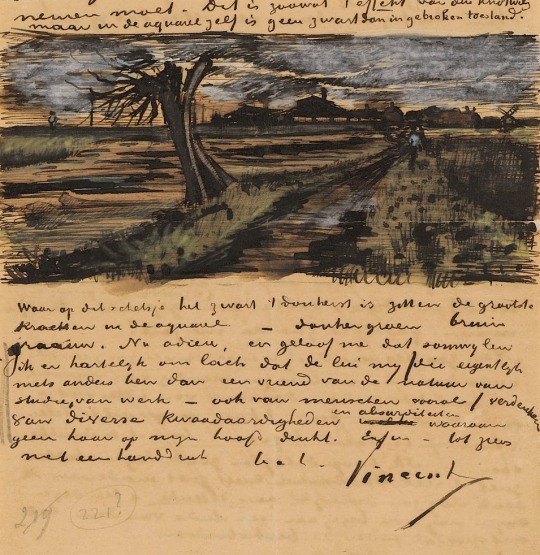 nemen moet. Dit is zoowat 't effekt van den knotwilg
maar in de aquarel zelf is geen zwart dan in gebroken toestand.
Waar op dit schetsje het zwart 't donkerst is zitten de grootste
krachten in de aquarel — donkergroen bruin
graauw. Nu adieu, en geloof me dat somwylen
ik er hartelyk om lach dat de lui my die eigentlyk
niets anders ben dan een vriend van de natuur van
studie, van werk — ook van menschen vooral / verdenken
van diverse kwaadaardigheden en absurditeiten waarvan
geen haar op myn hoofd denkt. Enfin — tot ziens
met een handdruk t. à t. Vincent
219 221?